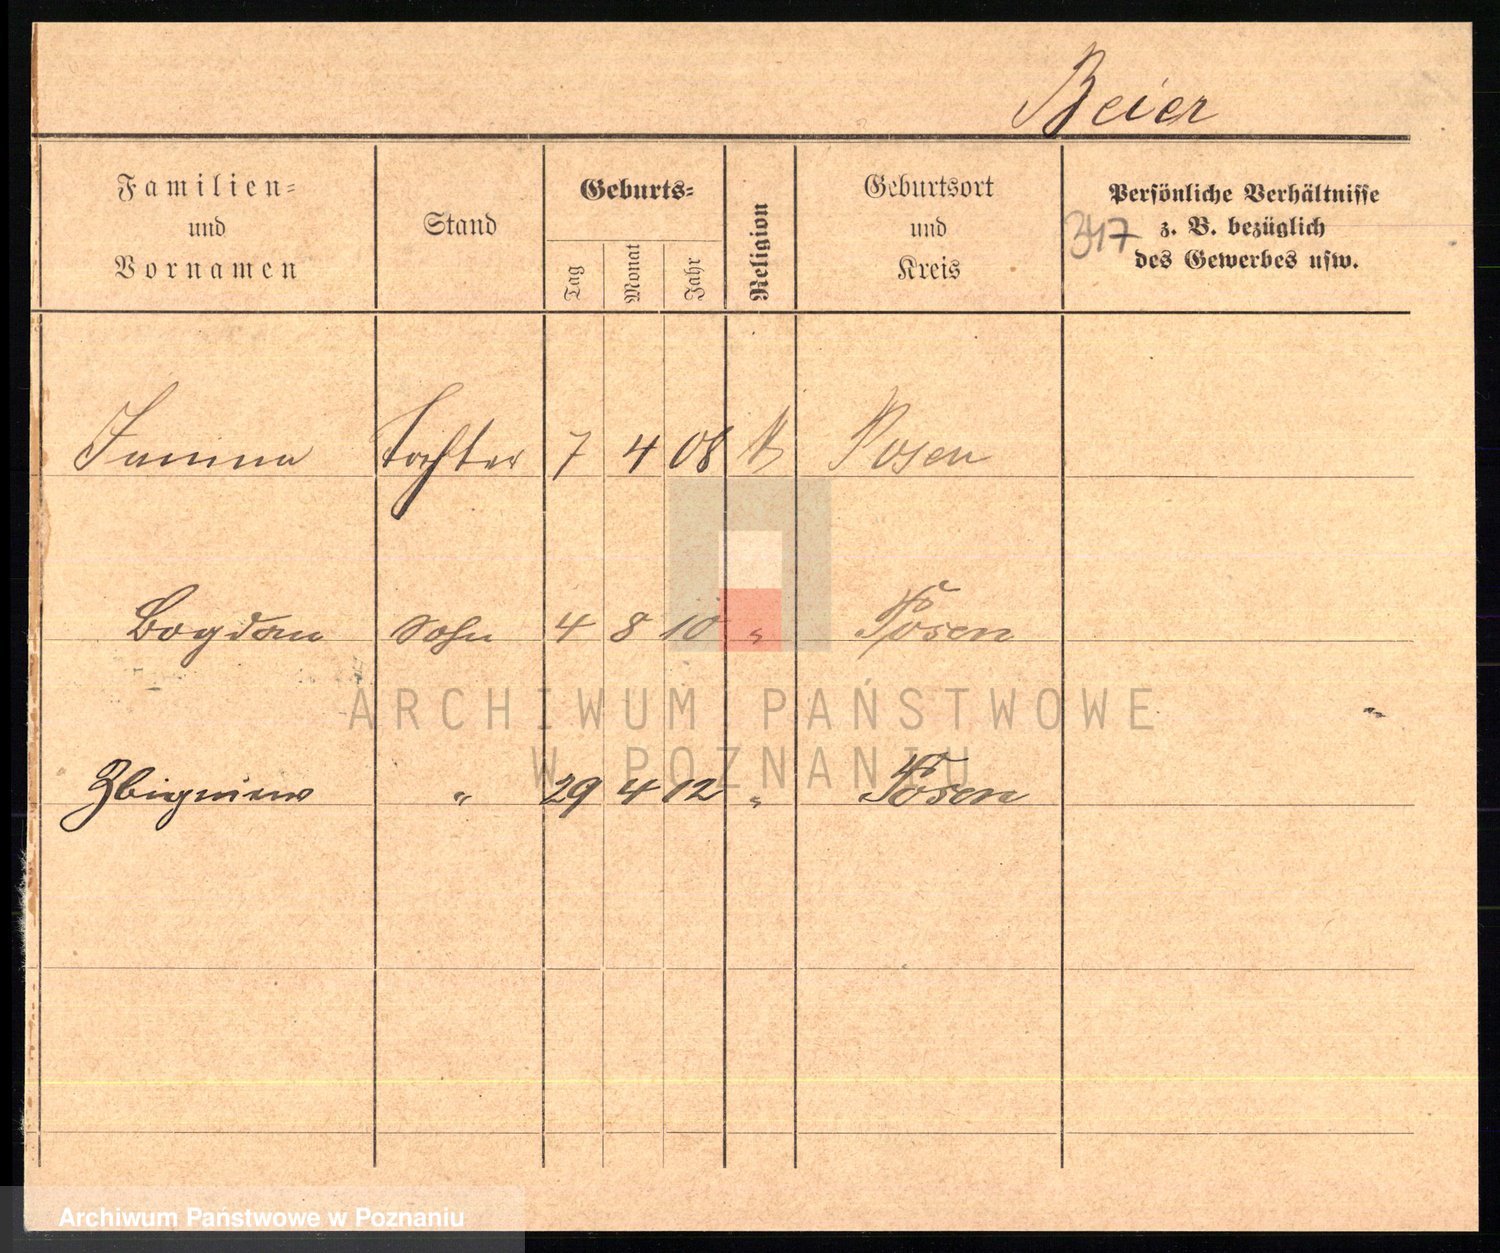 Beier
Familien=
und
Vornamen
Stand
Geburts=
Tag
Monat
Jahr
Religion
Geburtsort
und
Kreis
Persönliche Verhältnisse
z. B. bezüglich
des Gewerbes usw.
347
Janina Tochter 7 4 08 K Posen
Bogdan Sohn 4 8 10 " Posen
Zbigniew " 29 4 12 " Posen
ARCHIWUM PAŃSTWOWE
W POZNANIU
Archiwum Państwowe w Poznaniu